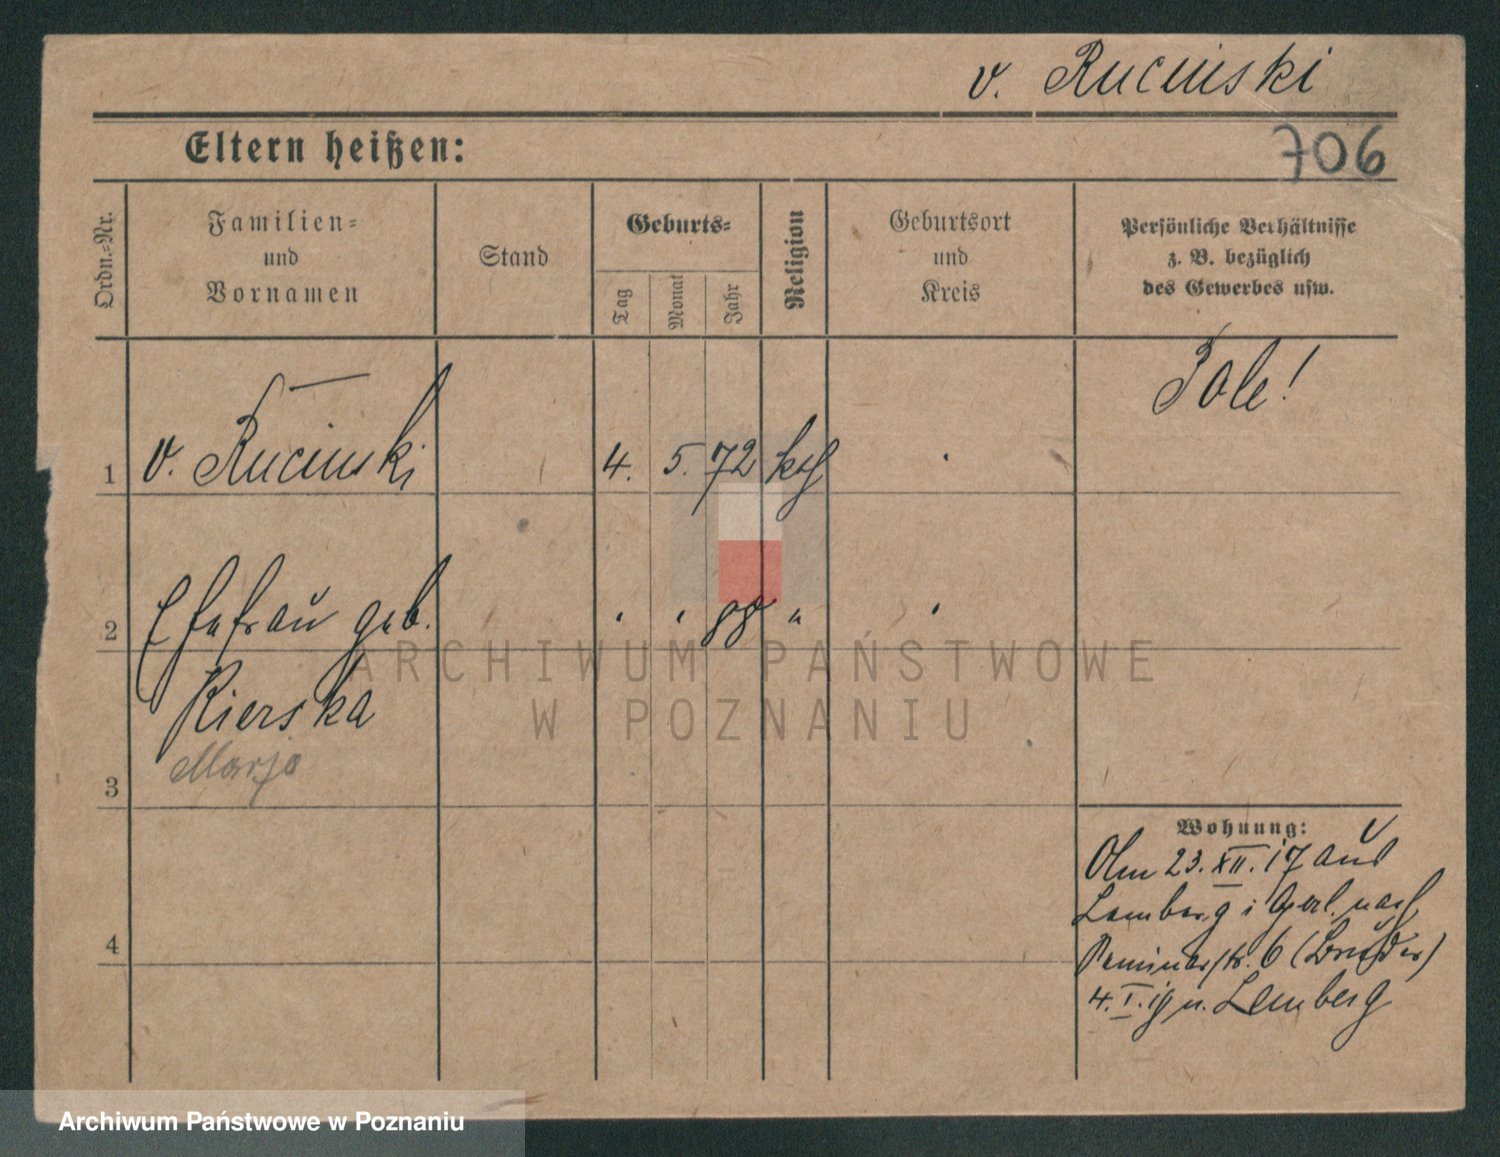 v. Rucinski
706
Eltern heißen:
Ordn.-Nr.
Familien-
und
Vornamen
Stand
Geburts-
Tag
Monat
Jahr
Religion
Geburtsort
und
Kreis
Persönliche Verhältnisse
z. B. bezüglich
des Gewerbes usw.
Pole!
1 v. Rucinski 4. 5. 72 kth
2 Ehefrau geb. 88 "
Kierska
Marja
3
4
Wohnung:
Am 23.XII.17 aus
Lemberg i nach
Seminarstr. 6 (Bruder)
4.I.19 n. Lemberg
ARCHIWUM PAŃSTWOWE
W POZNANIU
Archiwum Państwowe w Poznaniu